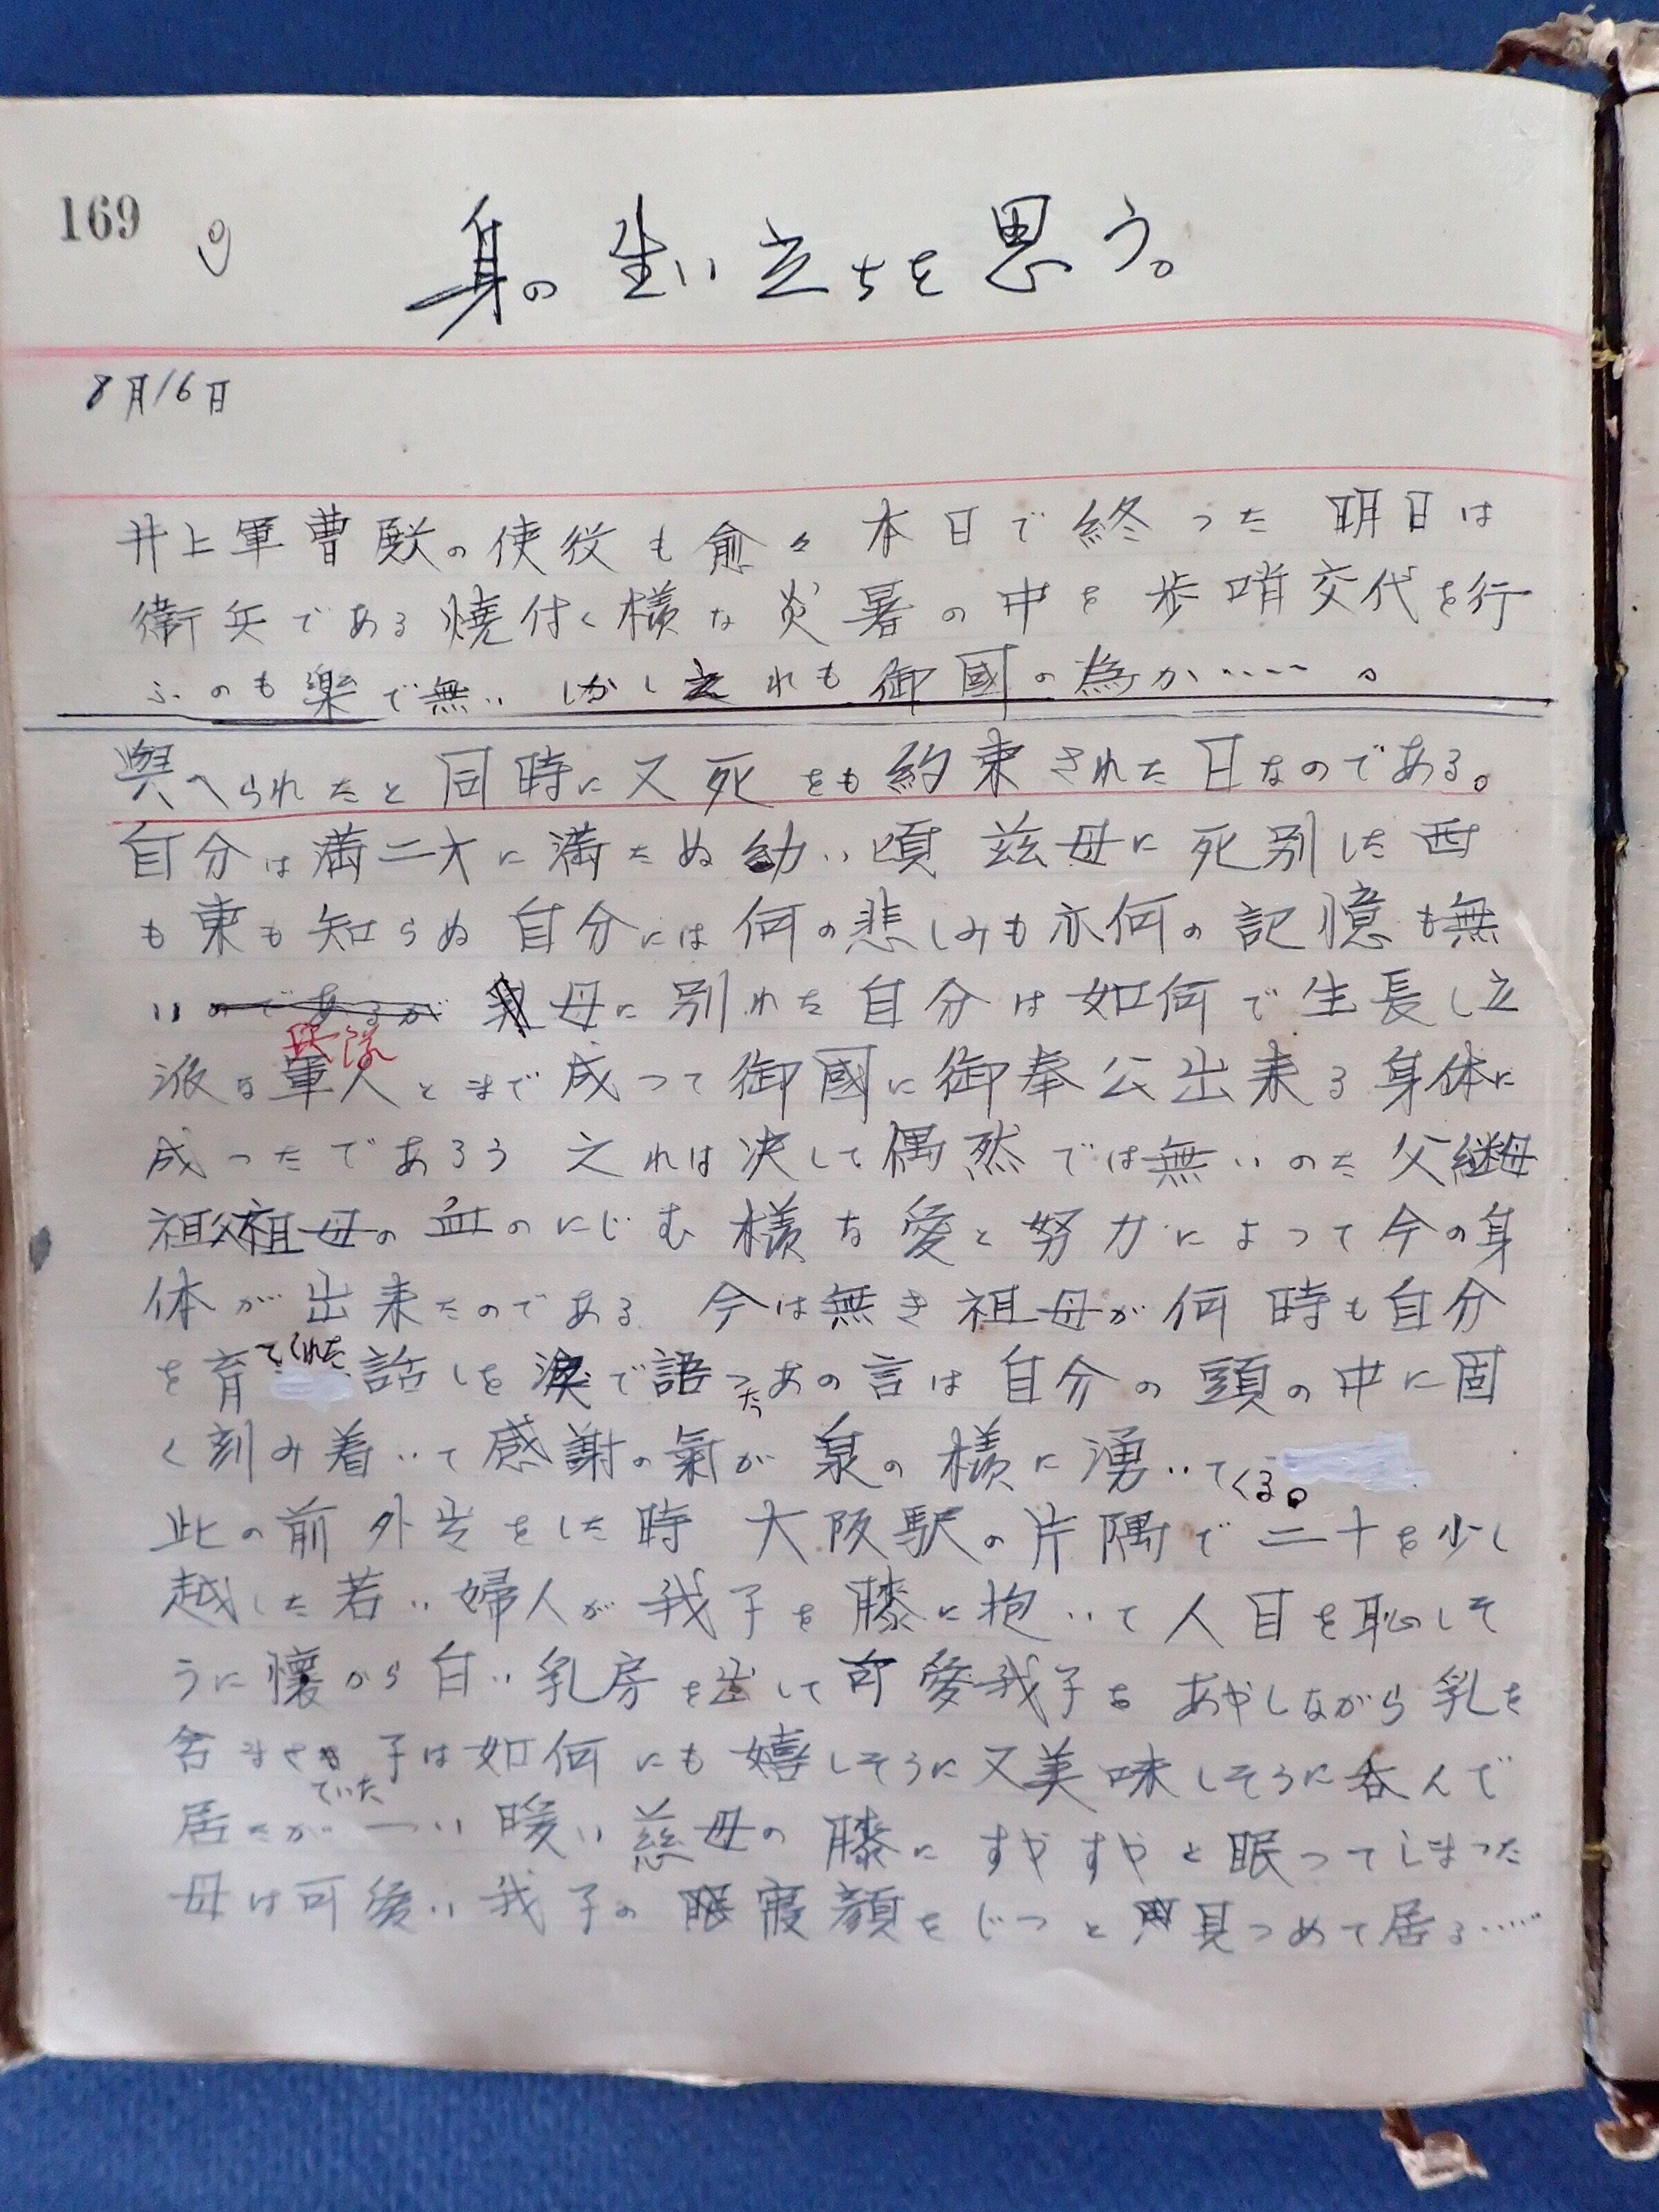 169
身の生い立ちを思う。
8月16日
井上軍曹殿の使役も愈々本日で終った 明日は
衛兵である焼付く様な炎暑の中を歩哨交代を行
ふのも楽で無い しかし之れも御國の為か‥‥。
與へられたと同時に又死をも約束された日なのである。
自分は満二才に満たぬ幼い頃 茲母に死別した西
も東も知らぬ自分には何の悲しみも亦何の記憶も無
いのであるが 母に別れた自分は如何で生長し立
兵隊
派な軍人とまで成って御國に御奉公出来る身体に
成ったであろう 之れは決して偶然では無いのた 父継母
祖父祖母の血のにじむ様な愛と努力によって今の身
体が出来たのである 今は無き祖母が何時も自分
を育てくれた話しを涙で語ったあの言は自分の頭の中に固
く刻み着いて感謝の氣が泉の様に湧いてくる。
此の前外出をした時 大阪駅の片隅で二十を少し
越した若い婦人が我子を膝に抱いて人目を恥しそ
うに懐から白い乳房を出して可愛我子をあやしながら乳を
含ませ 子は如何にも嬉しそうに又美味しそうに呑んで
ていた
居たが つい暖い慈母の膝にすやすやと眠ってしまった
母は可愛い我子の寝顔をじつと見つめて居る‥‥